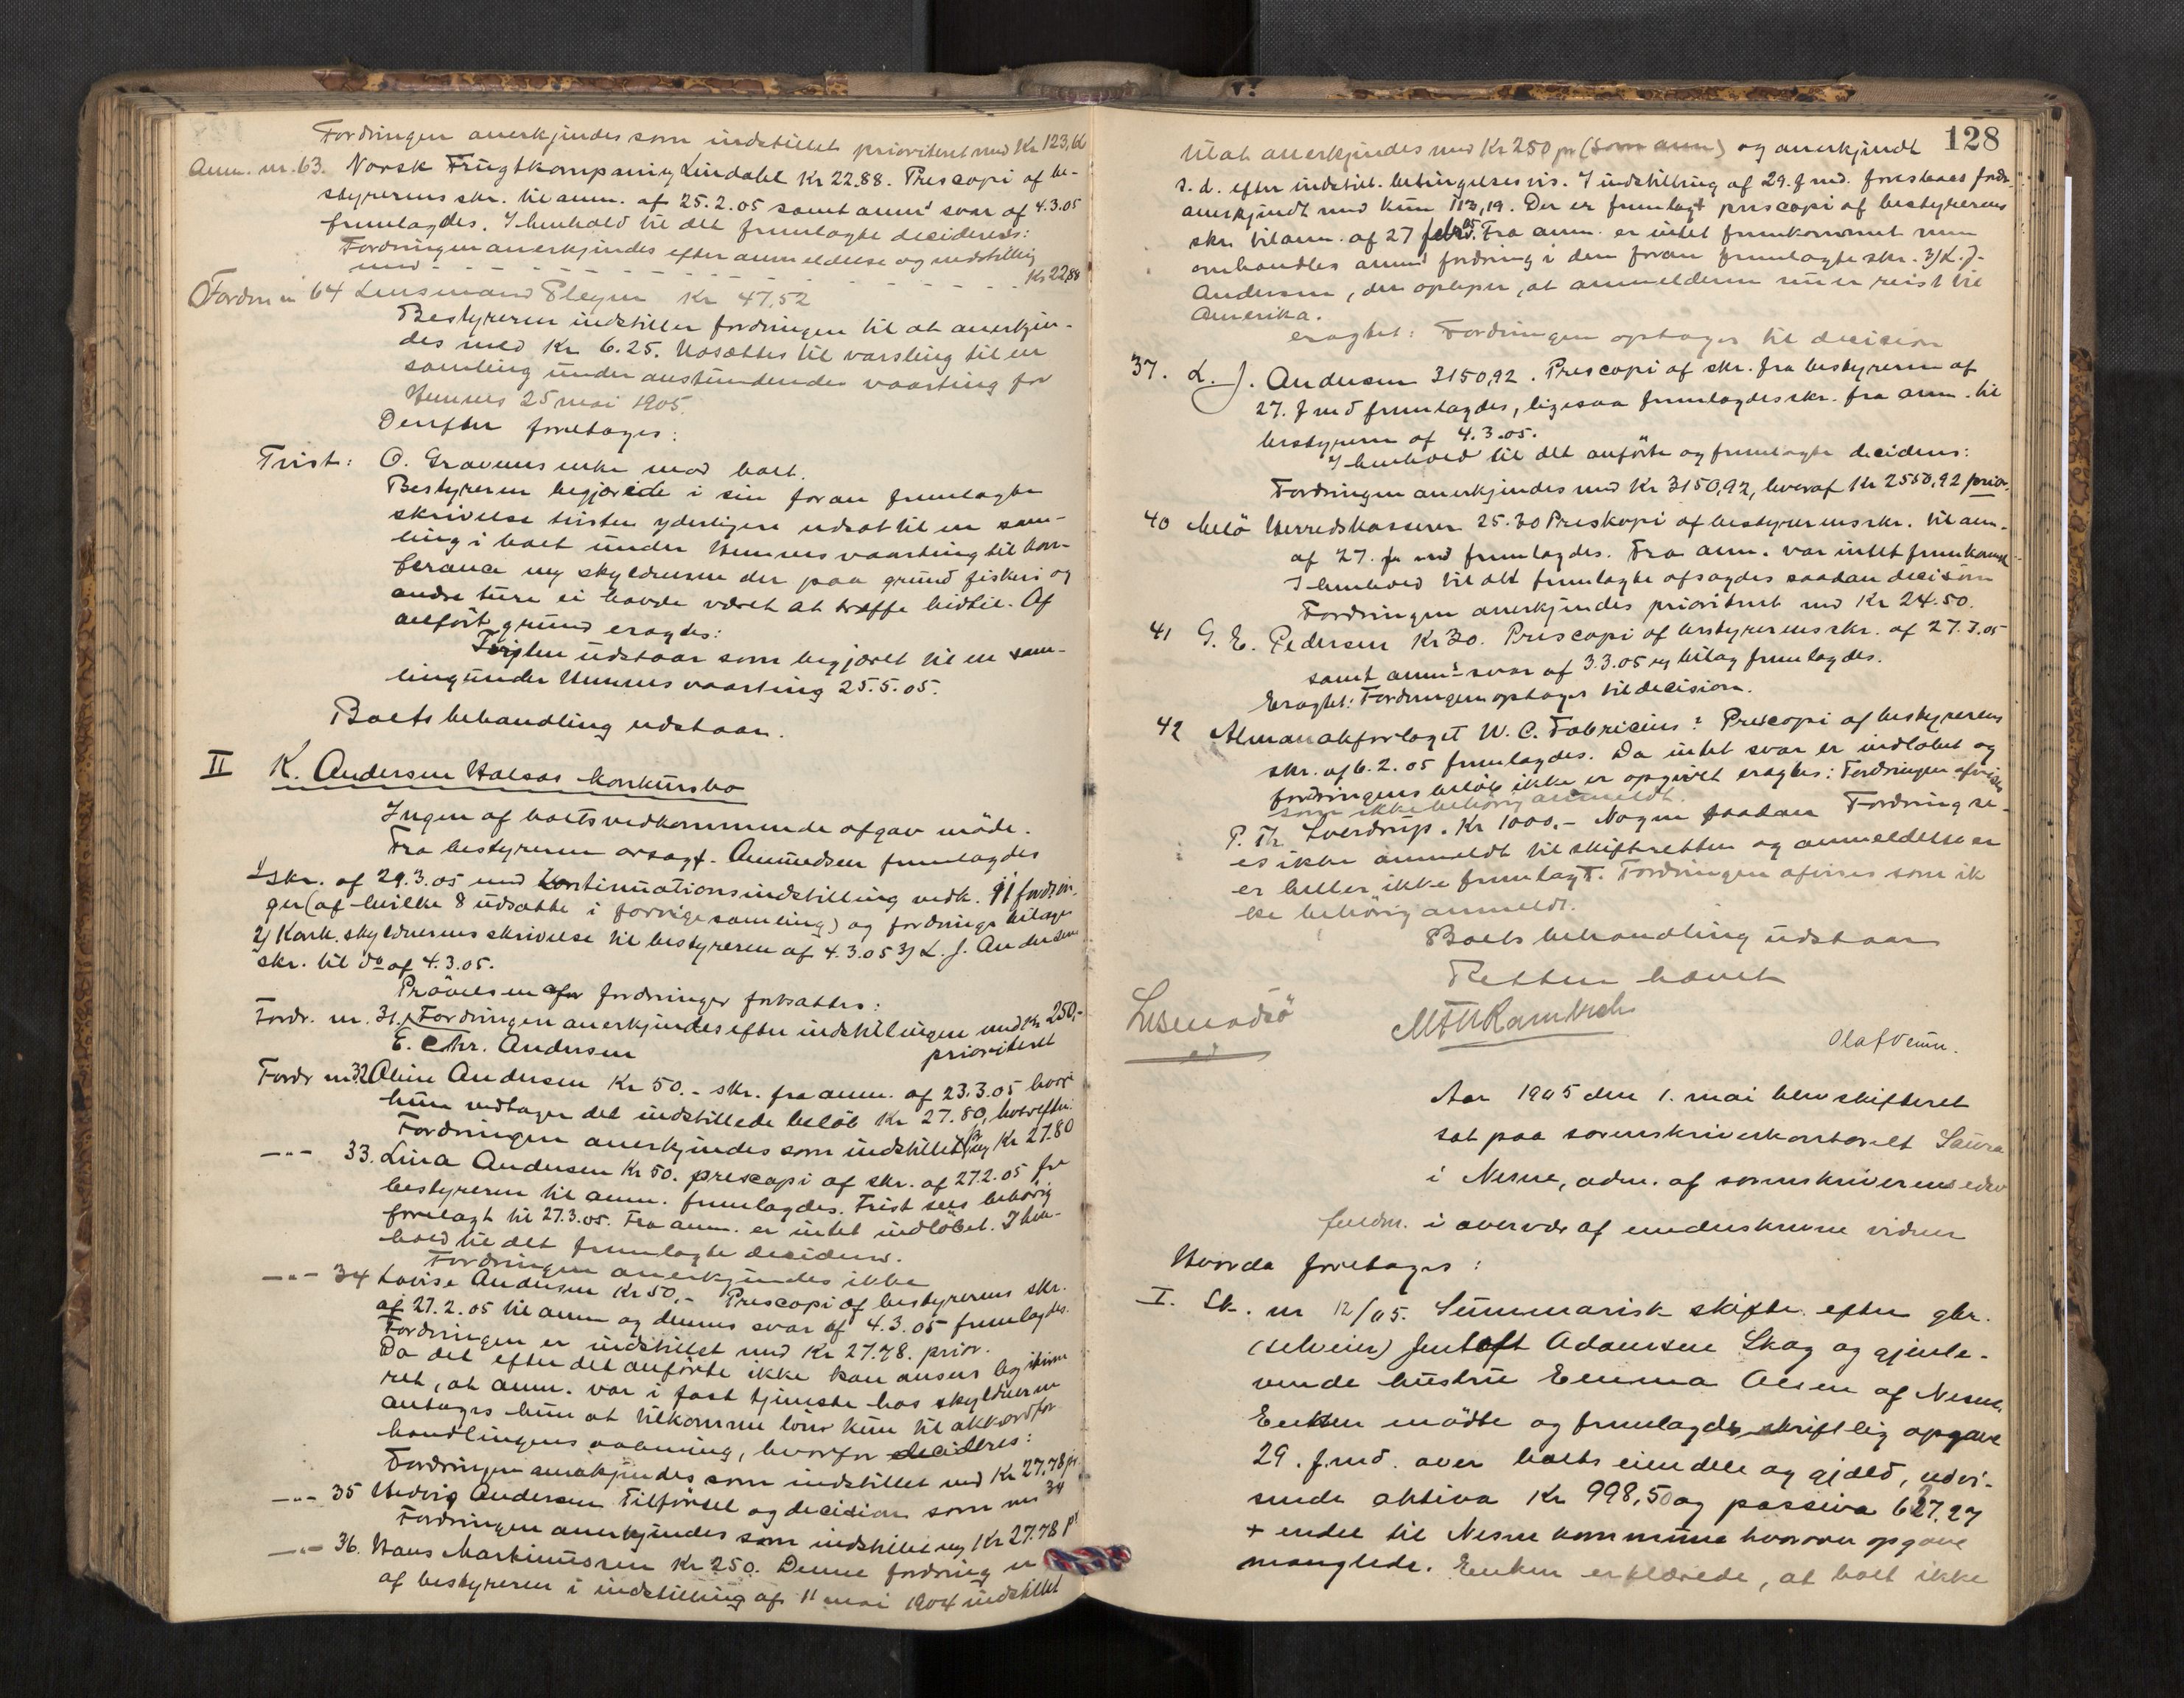 Fordringen anerkjendes som indstillet prioriteret med Kr 123,66
Anm. nr. 63. Norsk Frugtkompani Lindahl Kr 22.88. Prescopi af be-
styrerens skr. til anm. af 25.2.05 samt anms svar af 4.3.05
fremlagdes. I henhold til det fremlagte decideres:
Fordringen anerkjendes efter anmeldelse og indstilling
med - - - - - - - - Kr 22,88
Fordr nr 64 Lensmand Pleym Kr 47,52
Bestyreren indstiller fordringen til at anerkjen-
des med Kr 6.25. Udsættes til varsling til en
samling under anstundendes vaarting for
Hemnes 25 mai 1905.
Derefter foretages:
Tvist: O. Gravems enke mod boet.
Bestyreren begjærede i sin foran fremlagte
skrivelse tvisten yderligere udsat til en sam-
ling i boet under Hemnes vaarting til kon-
ferance mg skyldneren der paa grund fiskeri og
andre ture ei havde været at træffe hidtil. Af
anført grund eragtes:
Tvisten udstaar som begjæret til en sam-
ling under Hemnes vaarting 25.5.05.
Boets behandling udstaar.
II K. Andersen Halsøs konkursbo
Ingen af boets vedkommende afgav møde.
Fra bestyreren orsagf. Amundsen fremlagdes
1/ skr. af 29.3.05 med Continuationsindstilling vedk. 11 fordrin-
ger (af hvilke 8 udsatte i forrige samling) og fordrings bilage
2/ Konk. skyldnerens skrivelse til bestyreren af 4.3.05 3/ L. J. Andersens
skr. til do af 4.3.05.
Prøvelsen af fordringer fortsattes:
Fordr. nr. 31. Fordringen anerkjendes efter indstillingen med Kr 250,-
E. Chr. Andersen prioriteret
Fordr nr 32 Oline Andersen Kr 50.- skr. fra anm. af 23.3.05 hvori
hun vedtager det indstillede beløb Kr 27.80, hvorefter:
Fordringen anerkjendes som indstillet mg Kr 27.80
-"- 33. Lina Andersen Kr 50. prescopi af skr. af 27.2.05 fra
bestyreren til anm. fremlagdes. Frist sees behørig
forelagt til 27.3.05. Fra anm. er intet indløbet. I hen-
hold til det fremlagte decideres.
Fordringen anerkjendes ikke
-"- 34 Lovise Andersen Kr 50.- Prescopi af bestyrerens skr.
af 27.2.05 til anm og dennes svar af 4.3.05 fremlagdes.
Fordringen er indstillet med Kr 27.78. prior.
Da det efter det anførte ikke kan ansees legitime
ret, at anm. var i fast tjeneste hos skyldneren
antages hun at tilkomme løns kun til akkordfor-
handlingens aabning, hvorfor decideres:
Fordringen anerkjendes som indstillet med Kr 27.78 pr.
-"- 35 Hedvig Andersen Tilførsel og decision som nr 34
Fordringen anerkjendes som indstillet mg Kr 27.78 pr
-"- 36. Hans Martinussen Kr 250. Denne fordring er
af bestyreren i indstilling af 11 mai 1904 indstillet
128
til at anerkjendes med Kr 250 pr (som anm) og anerkjendt
s. d. efter indstil. betingelsesvis. I indstilling af 29. f md. foreslaaes fordr.
anerkjendt med kun 113,19. Der er fremlagt prescopi af bestyrerens
skr. til anm. af 27 febr. 05. Fra anm. er intet fremkommet men
omhandles anms fordring i den foran fremlagte skr. 3/ L. J.
Andersen, der oplyser, at anmelderen nu er reist til
Amerika.
eragtet: Fordringen optages til decision
37. L. J. Andersen 3150,92. Prescopi af skr. fra bestyreren af
27. f md fremlagdes, ligesaa fremlagdes skr. fra anm. til
bestyreren af 4.3.05.
I henhold til det anførte og fremlagte decideres:
Fordringen anerkjendes med Kr 3150,92, hvoraf Kr 2550,92 prior.
40 Melø Herredskasserer 25.30 Preskopi af bestyrerens skr. til anm.
af 27. f md fremlagdes. Fra anm. var intet fremkommet
I henhold til det fremlagte afsagdes saadan decision
Fordringen anerkjendes prioriteret med Kr 24.50.
41 G. E. Pedersen Kr 30. Prescopi af bestyrerens skr. af 27.3.05
samt anms svar af 3.3.05 og bilag fremlagdes.
Eragtet: Fordringen optages til decision.
42 Almanakforlaget W. C. Fabricius: Prescopi af bestyrerens
skr. af 6.2.05 fremlagdes. Da intet svar er indløbet og
fordringens beløb ikke er opgivet eragtes: Fordringen afvises
som ikke behørig anmeldt.
P. Th. Sverdrup. Kr 1000.- Nogen saadan Fordring se-
es ikke anmeldt til skifteretten og anmeldelse er
er heller ikke fremlagt. Fordringen afvises som ik
ke behørig anmeldt.
Boets behandling udstaar
Retten hævet
Olaf
Aar 1905 den 1. mai blev skifteret
sat paa sorenskriverkontoret Saura
i Nesne, adm. af sorenskriverens edsv
fuldm. i overvær af underskrevne vidner
Hvorda foretages:
I. Sk. nr 12/05. Summarisk skifte efter gbr.
(selveier) Jentoft Adamsen Skog og gjenle-
vende hustru Emma Olsen af Nesne.
Enken mødte og fremlagde skriftlig opgave
29. f.md. over boets eiendele og gjæld, udvi-
sende aktiva Kr 998,50 og passiva 627.27
+ endel til Nesne kommune hvorom opgave
manglede. Enken erklærede, at boet ikke